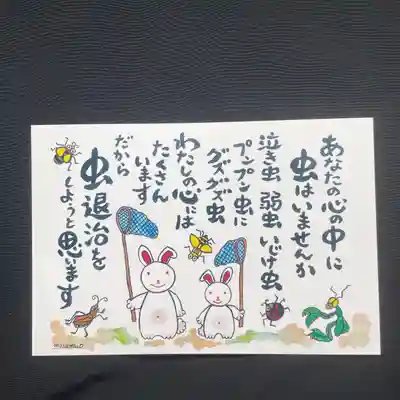 あなたの心の中に
虫はいませんか
泣き虫 弱虫 いじけ虫
プンプン虫に
グズグズ虫
わたしの心には
たくさん
います
だから
虫退治を
しようと思います